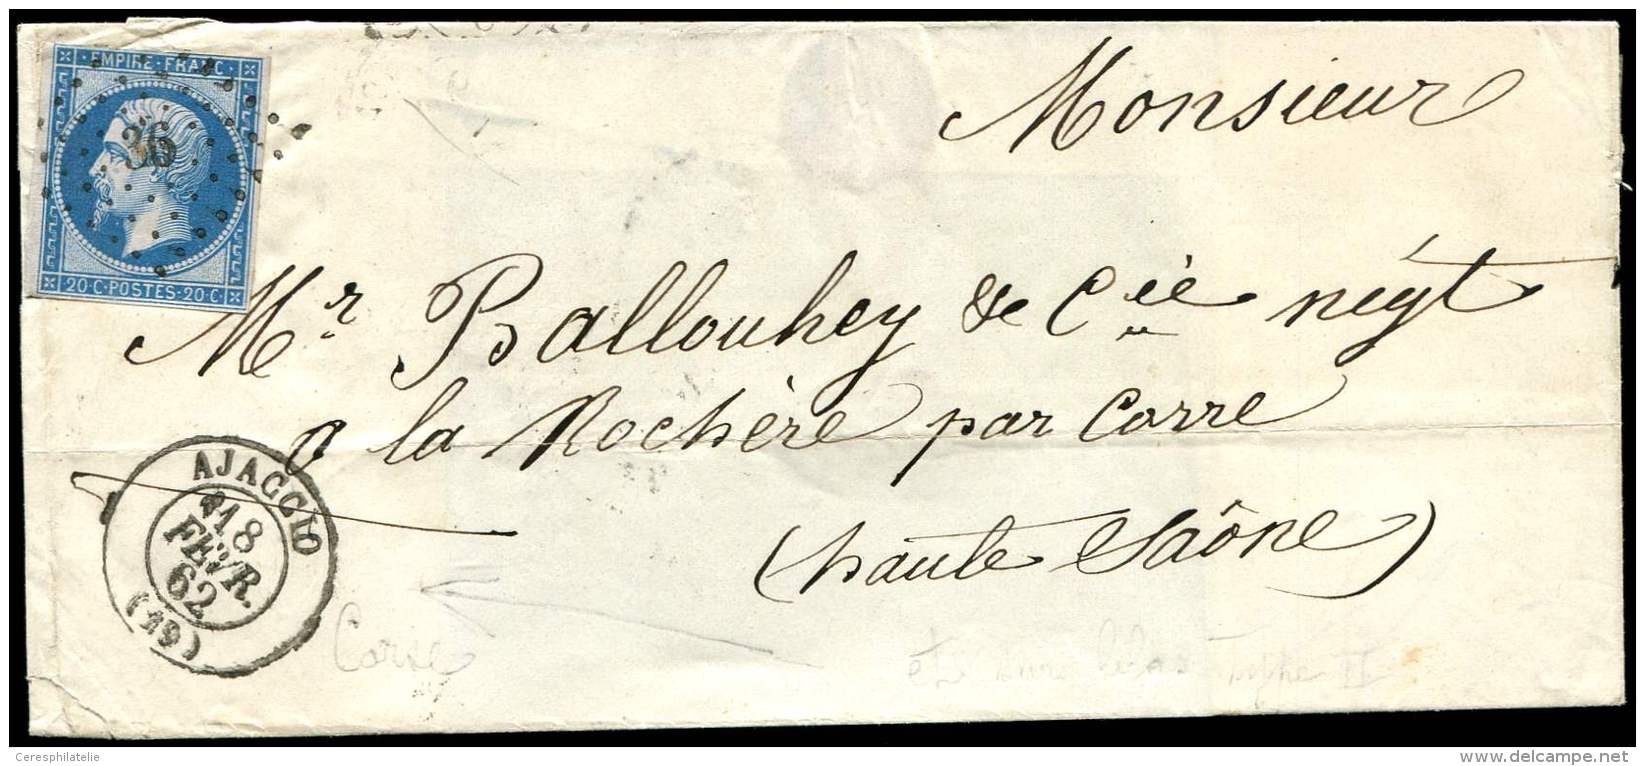 EMPIRE·FRANC·
36
20·C·POSTES·20·C·
Monsieur
Mr Ballouhey & Cie négt
a la Rochère par Corre
(haute Saône)
AJACCIO
18
FEVR.
62
(19)
Corse
Type II
Ceresphilatelie
delcampe.net